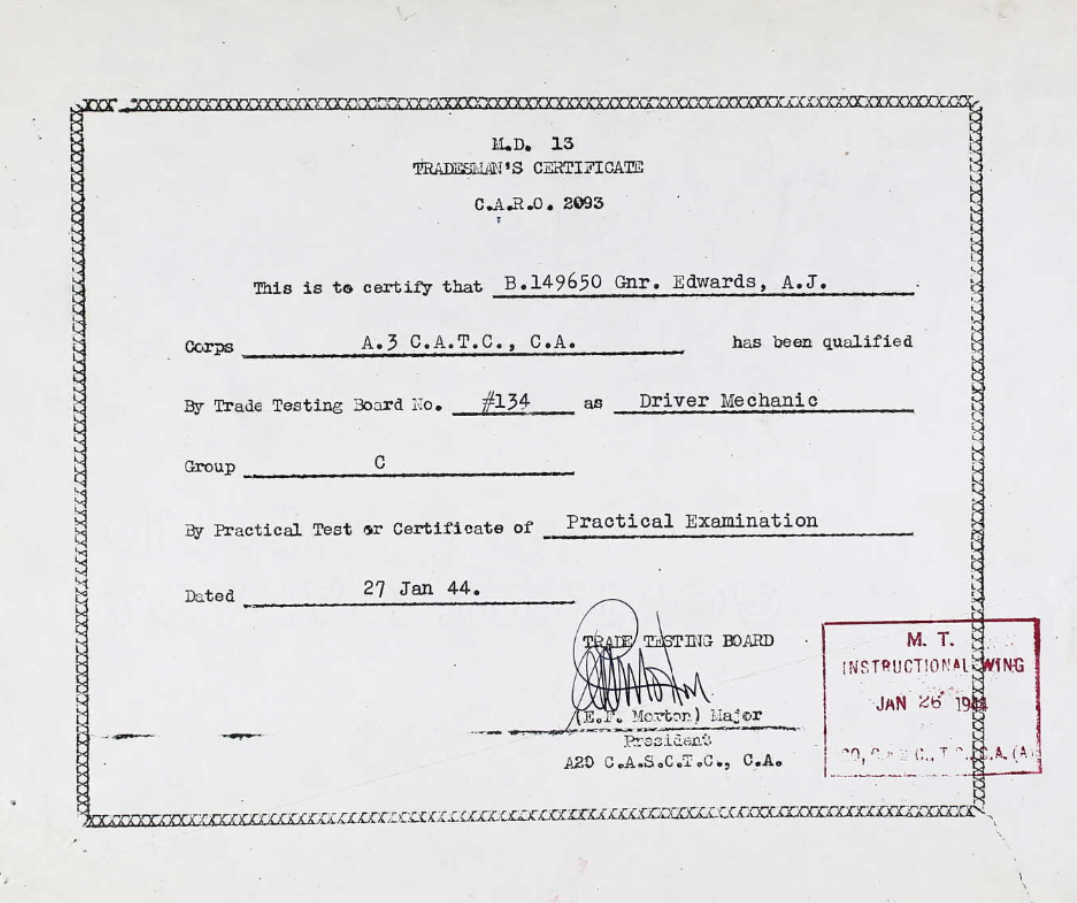 M.D. 13
TRADESMAN'S CERTIFICATE
C.A.R.O. 2093
This is to certify that B.149650 Gnr. Edwards, A.J.
Corps A.3 C.A.T.C., C.A. has been qualified
By Trade Testing Board No. #134 as Driver Mechanic
Group C
By Practical Test or Certificate of Practical Examination
Dated 27 Jan 44.
TRADE TESTING BOARD
(E.F. Morton) Major
President
A20 C.A.S.C.T.C., C.A.
M. T.
INSTRUCTIONAL WING
JAN 26 1944